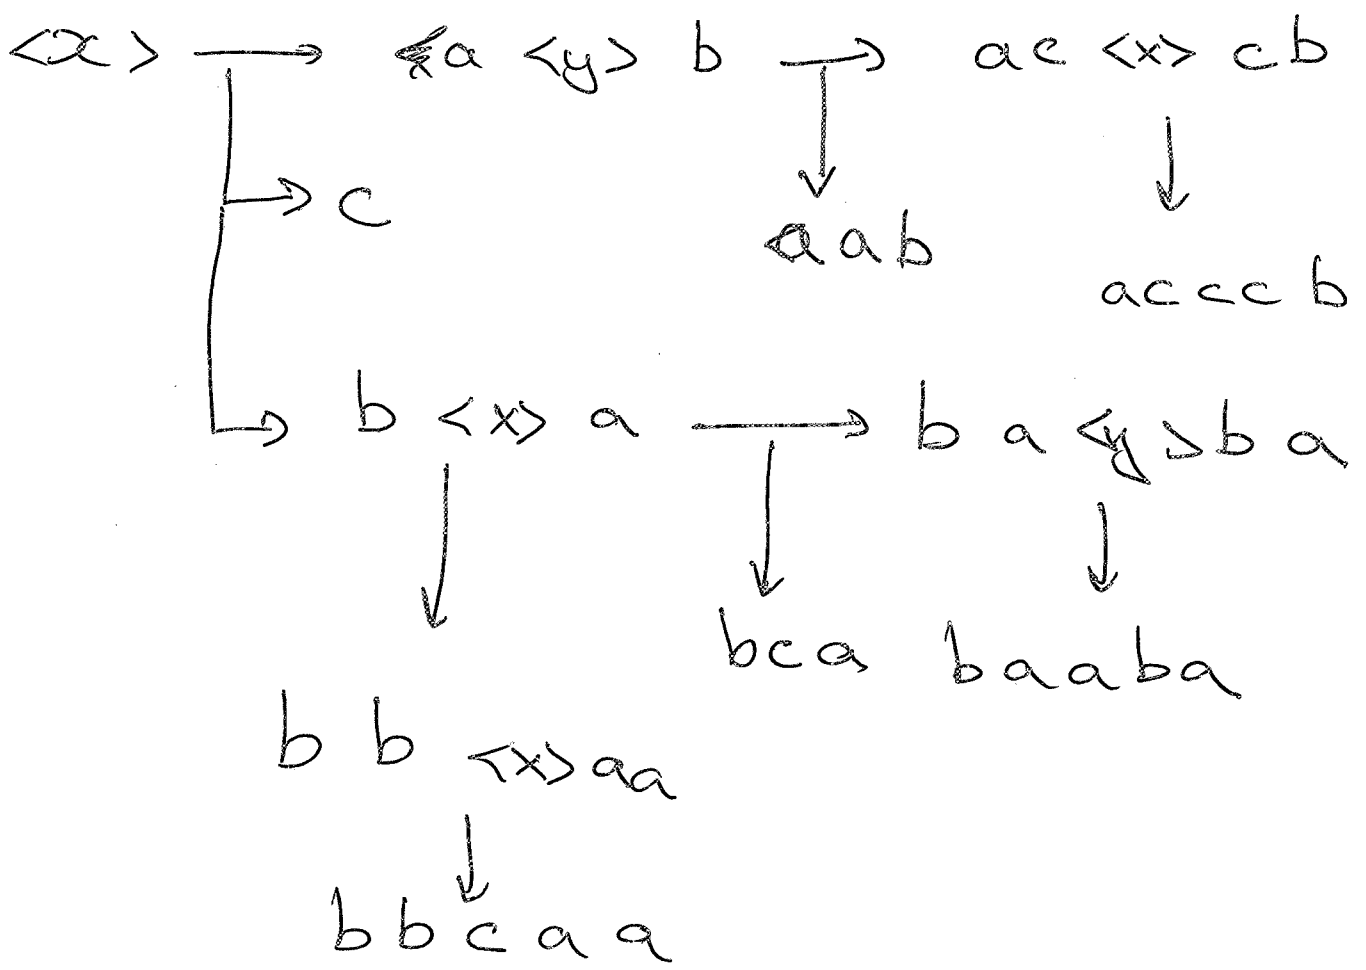 <x> → a <y> b → ac <x> cb
→ c
aab
acccb
b <x> a → b a <y> b a
bca baaba
b b <x> aa
b b c a a